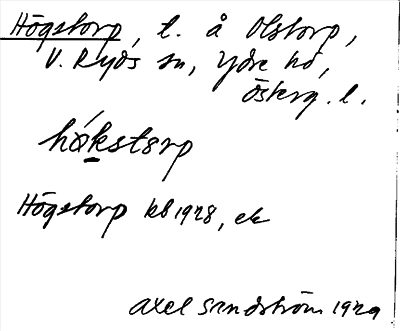 Högstorp, t. å Olstorp,
V. Ryds sn, Ydre hd,
Österg. l.
hö́kstorp
Högstorp kb 1928, ek
Axel Sandström 1929